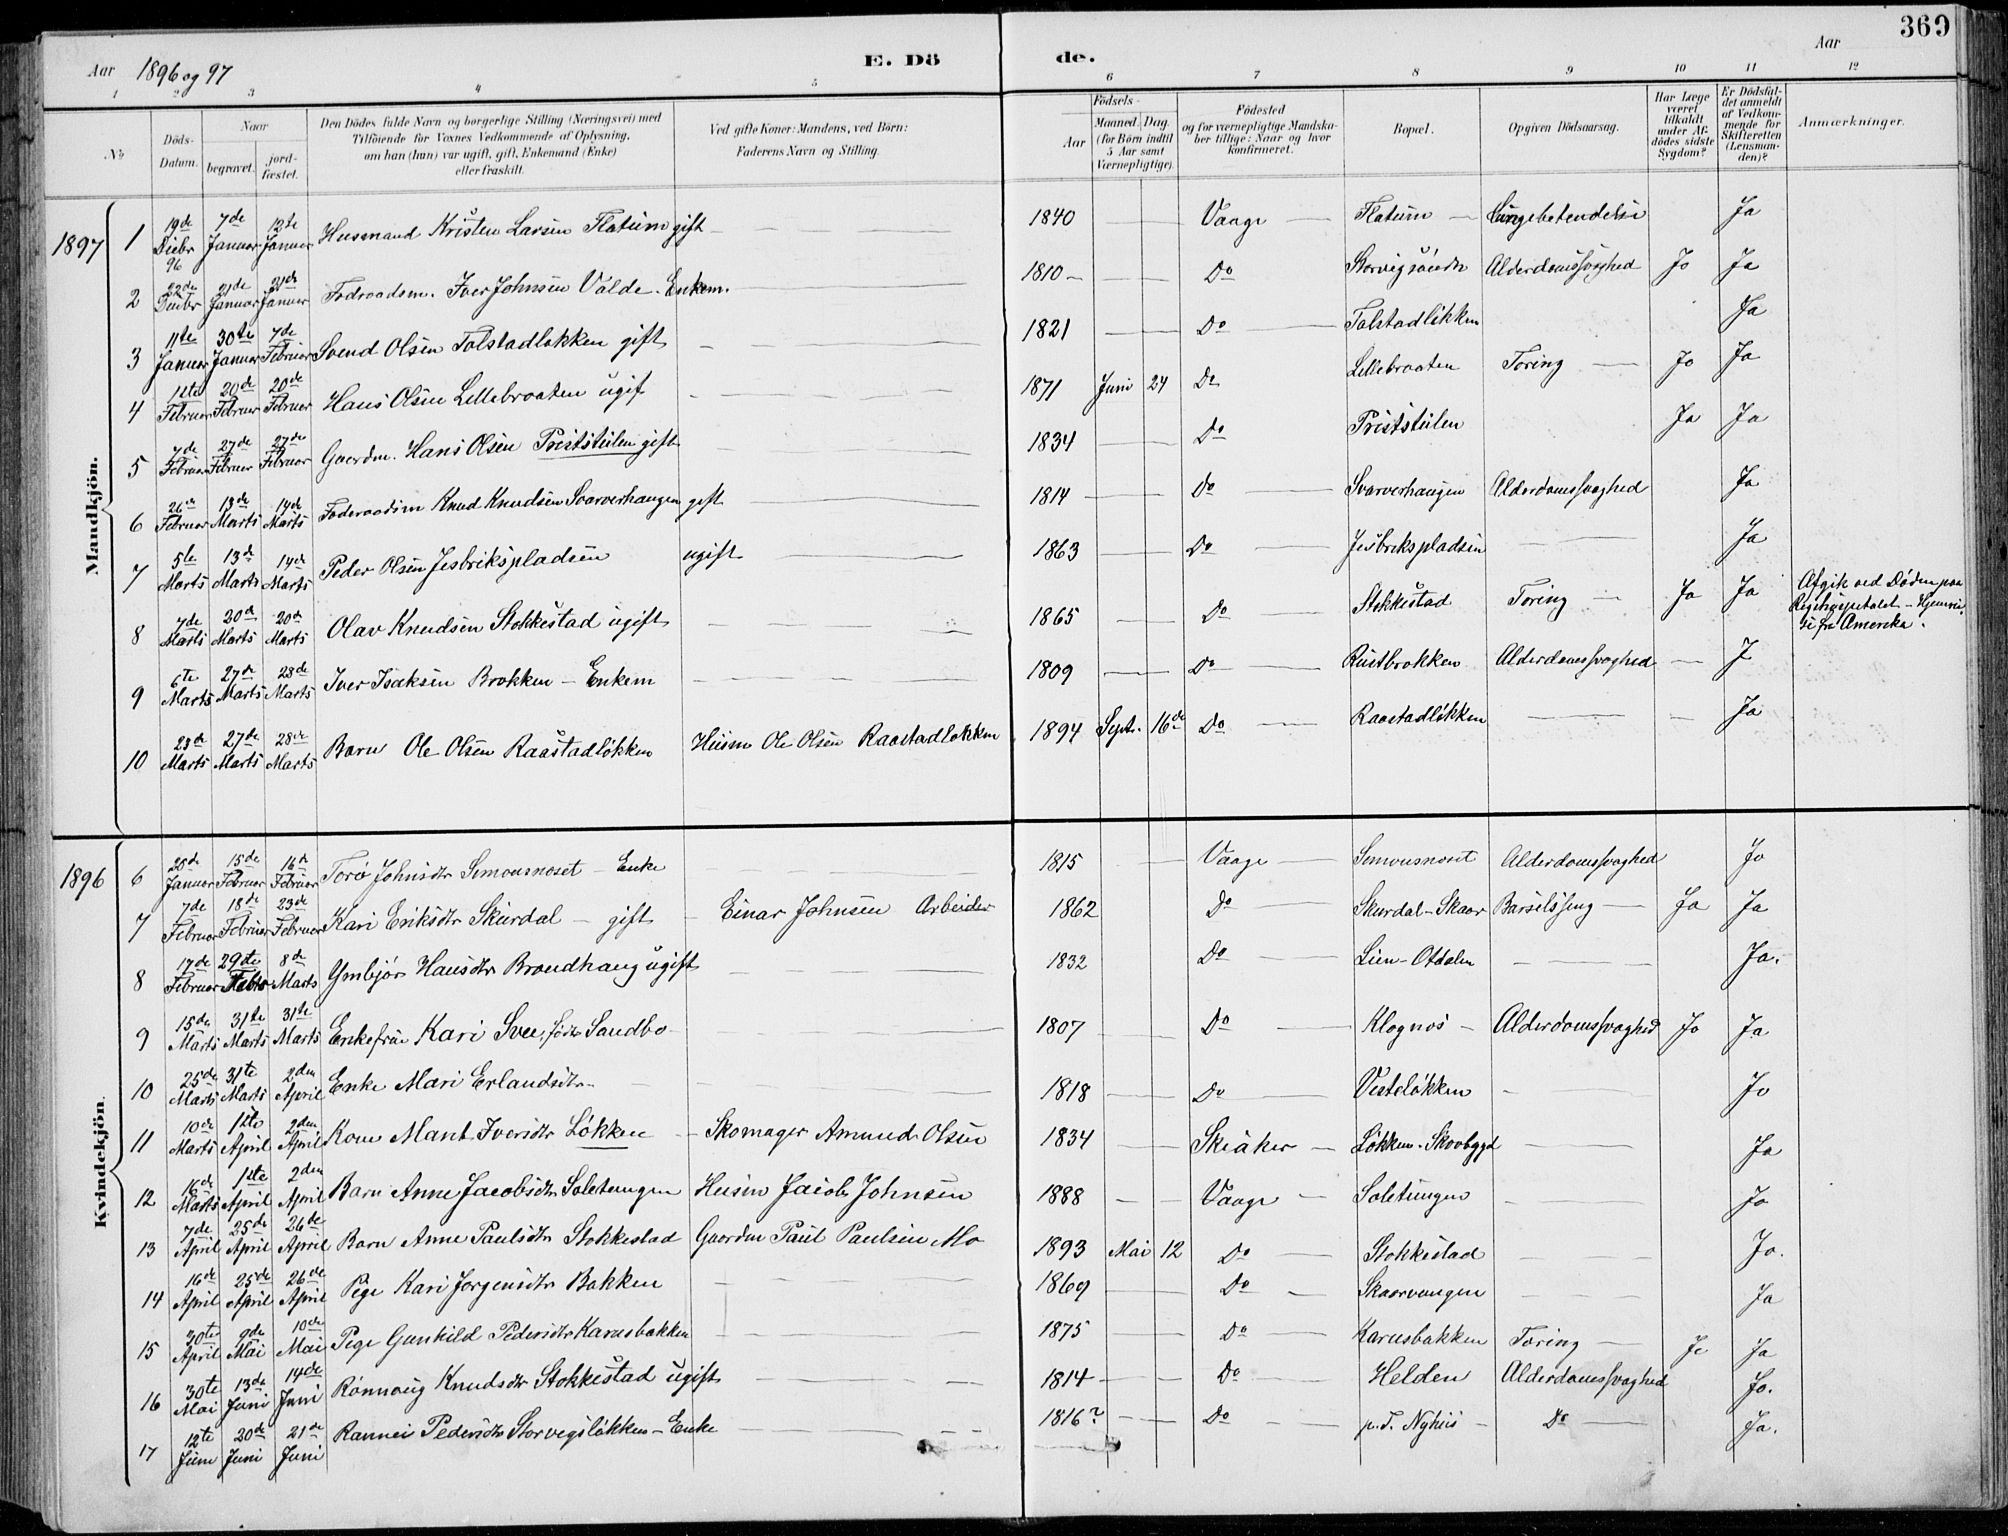 Aar 1896 og 97 E. Dö de. Aar 369
1 2 3 4 5 6 7 8 9 10 11 12
No
Döds-Datum.
Naar
begravet.
jordfæstet.
Den Dödes fulde Navn og borgerlige Stilling (Næringsvei) med
Tilföiende for Voxnes Vedkommende af Oplysning,
om han (hun) var ugift, gift, Enkemand (Enke)
eller fraskilt.
Ved gifte Koner: Mandens, ved Börn:
Faderens Navn og Stilling.
Födsels-
Aar
Maaned. Dag.
(for Börn indtil
5 Aar samt
Værnepligtige).
Födested
og for værnepligtige Mandska-
ber tillige: Naar og hvor
konfirmeret.
Bopæl.
Opgiven Dödsaarsag.
Har Læge
været
tilkaldt
under Af-
dödes sidste
Sygdom?
Er Dödsfal-
det anmeldt
af Vedkom-
mende for
Skifteretten
(Lensman-
den)?
Anmærkninger.
Mandkjön.
1897 1 19de Decbr 96 7de Januar 12te Januar Husmand Kristen Larsen Flatum gift 1840 Vaage Flatum Lungebetendelse Ja
2 22de Decbr 21de Januar 21de Januar Foderaadsm. Iver Johnsen Valde. Enkem. 1810 Do Alderdomssvaghed Ja Ja
3 11te Januar 30te Januar 7de Februar Svend Olsen Tolstadløkken gift 1821 Do Tolstadløkken Ja
4 11te Februar 20de Februar 20de Februar Hans Olsen Lillebraaten ugift 1871 Juni 24 Do Lillebraaten Tæring Ja Ja
5 7de Februar 27de Februar 27de Februar Gaardm. Hans Olsen Preststulen gift 1834 Do Preststulen Ja Ja
6 26de Februar 13de Marts 14de Marts Foderaadsm Knud Knudsen Svarverhaugen gift 1814 Do Svarverhaugen Alderdomssvaghed Ja
7 5te Marts 13de Marts 14de Marts Peder Olsen Jesbrikspladsen ugift 1863 Do Jesbrikspladsen Ja
8 7de Marts 20de Marts 20de Marts Olav Knudsen Stokkestad ugift 1865 Do Stokkestad Tæring Ja Ja Afgik ved Døden paa
Rigshospitalet - Hjemrei-
se fra Amerika.
9 6te Marts 27de Marts 28de Marts Iver Isaksen Brokken - Enkem 1809 Do Rustbrokken Alderdomssvaghed J
10 23de Marts 27de Marts 28de Marts Barn Ole Olsen Raastadløkken Husm Ole Olsen Raastadløkken 1894 Septr. 16de Do Raastadløkken Ja
Kvindekjön.
1896 6 25de Januar 15de Februar 16de Februar Torø Johnsdtr Simonsmoset - Enke 1815 Vaage Simonsmoset Alderdomssvaghed Ja
7 7de Februar 18de Februar 23de Februar Kari Eriksdtr Skurdal - gift Einar Johnsen Arbeider 1862 Do Skurdal-Skaar Barselsseng Ja Ja
8 17de Februar 29de Febr 8de Marts Ymbjør Hansdtr Brandhaug ugift 1832 Do Lien-Ottdalen Ja.
9 15de Marts 31te Marts 31te Marts Enkefrue Kari Svee, født Sandbo 1807 Do Klognæs Alderdomssvaghed Ja Ja
10 25de Marts 31te Marts 2den April Enke Mari Erlandsdtr 1818 Do Vesteløkken Ja
11 10de Marts 1ste April 2den April Kone Marit Iversdtr Løkken Skomager Amund Olsen 1834 Skiåker Løkken-Skovbygd Ja
12 16de Marts 1ste April 2den April Barn Anne Jacobsdtr Soletungen Husm Jacob Johnsen 1888 Vaage Soletungen Ja
13 7de April 25de April 26de April Barn Anne Paulsdtr Stokkestad Gaardm Paul Paulsen Mo 1893 Mai 12 Do Stokkestad Ja.
14 16de April 25de April 26de April Pige Kari Jørgensdtr Bakken 1869 Do Skaarvangen Ja
15 30te April 9de Mai 10de Mai Pige Gunhild Pedersdtr Karusbakken 1875 Do Karusbakken Tæring Ja Ja
16 30te Mai 13de Juni 14de Juni Rønnaug Knudsdtr Stokkestad ugift 1814 Do Helden Alderdomssvaghed Ja.
17 12te Juni 20de Juni 21de Juni Rannei Pedersdtr Storvegsløkken - Enke 1816? Do p.T. Nyhus Do Ja.